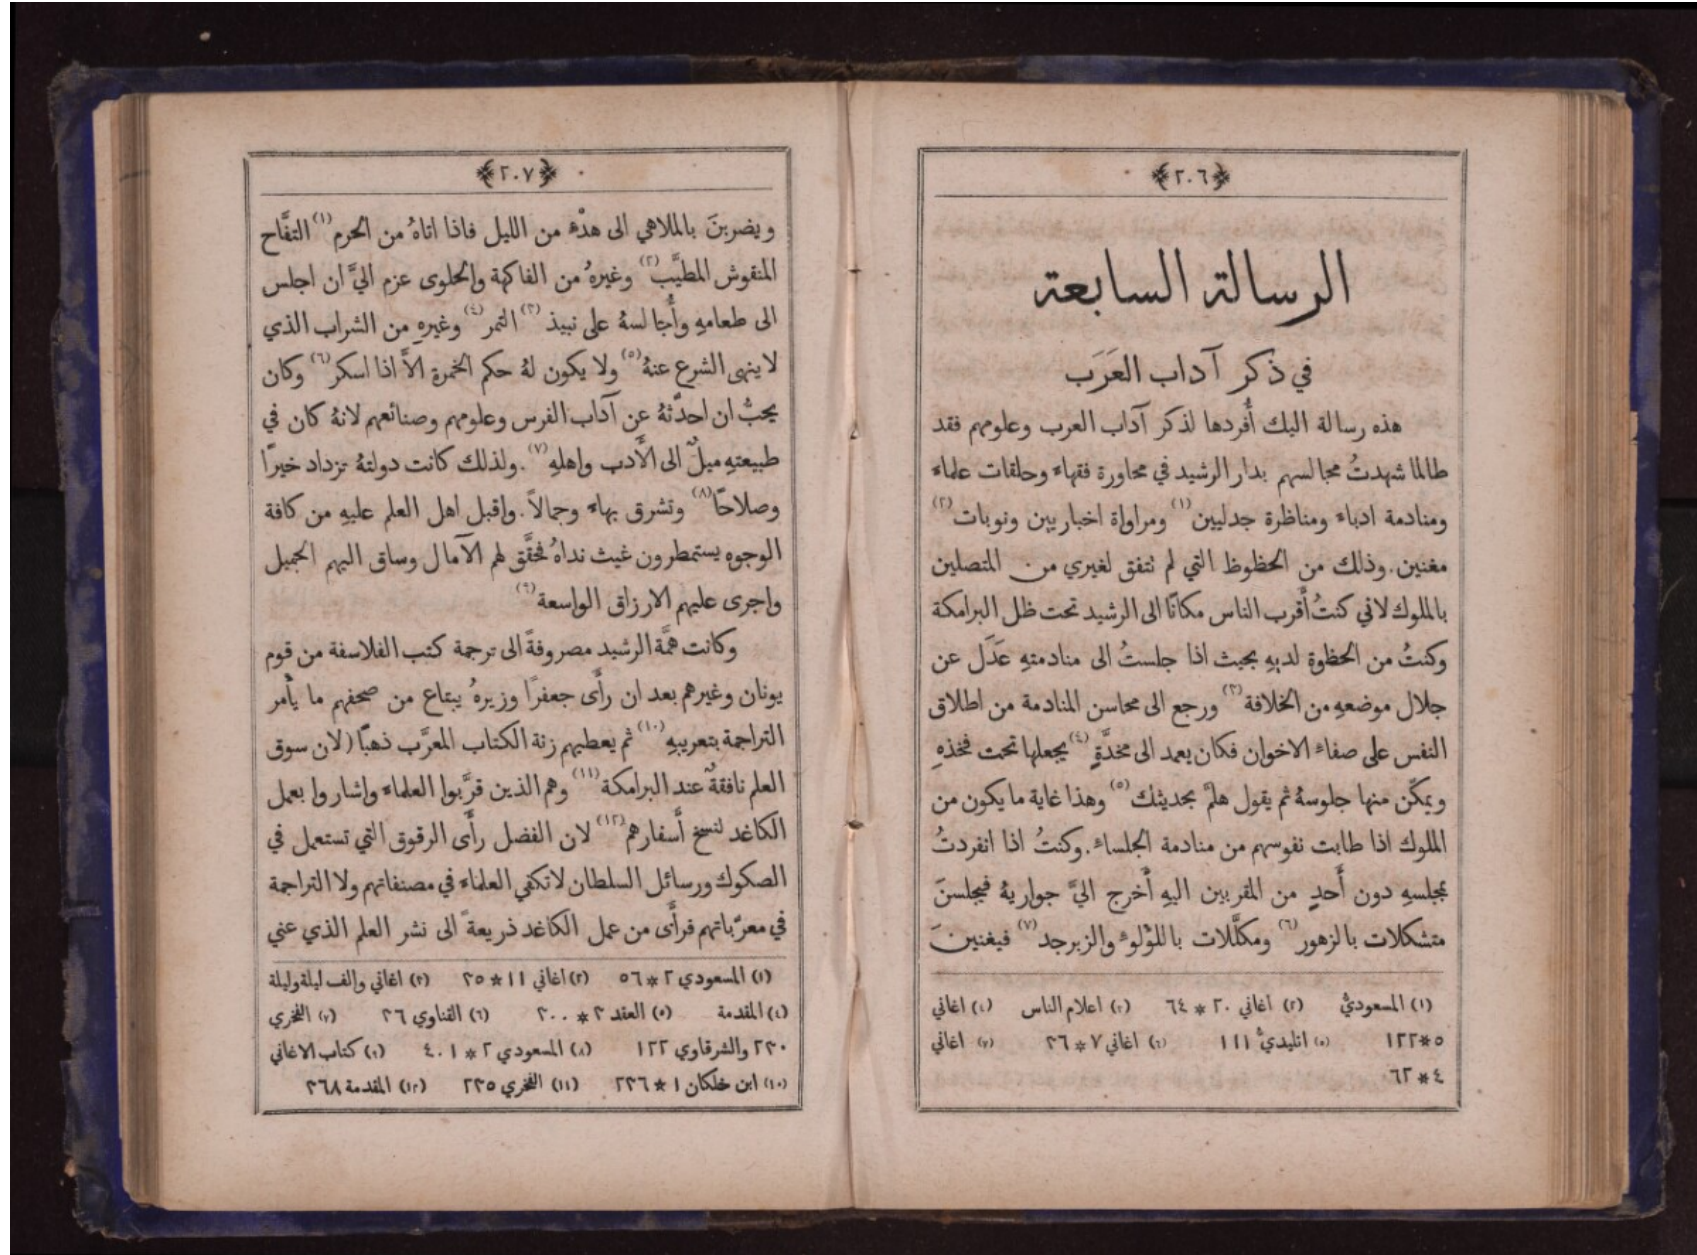 ﴿٢٠٦﴾
الرسالة السابعة
في ذكر آداب العَرَب
هذه رسالة اليك أُفردها لذكر آداب العرب وعلومهم فقد
طالما شهدتُ مجالسهم بدار الرشيد في محاورة فقهاء وحلقات علماء
ومنادمة ادباء ومناظرة جدليين (١) ومراواة اخباريين ونوبات (٢)
مغنين. وذلك من الحظوظ التي لم نتفق لغيري من المتصلين
بالملوك لاني كنتُ أقرب الناس مكانًا الى الرشيد تحت ظل البرامكة
وكنتُ من الحظوة لديهِ بحيث اذا جلستُ الى منادمتهِ عَدَل عن
جلال موضعهِ من الخلافة (٣) ورجع الى محاسن المنادمة من اطلاق
النفس على صفاء الاخوان فكان يعمد الى مخدَّةٍ (٤) يجعلها تحت فخذهِ
ويمكّن منها جلوسهُ ثم يقول هلمَّ بحديثك (٥) وهذا غاية ما يكون من
الملوك اذا طابت نفوسهم من منادمة الجلساء. وكنتُ اذا انفردتُ
بمجلسهِ دون أَحدٍ من المقربين اليهِ أَخرج اليَّ جواريهُ فيجلسنَ
متشكلات بالزهور (٦) ومكلَّلات باللؤلوء والزبرجد (٧) فيغنينَ
(١) المسعوديُّ (٢) اغاني ٢٠ * ٦٤ (٣) اعلام الناس (٤) اغاني
٥ * ١٢٢ (٥) اتليديُّ ١١١ (٦) اغاني ٧ * ٣٦ (٧) اغاني
٤ * ٦٢
﴿٢٠٧﴾
ويضربنَ بالملاهي الى هدْءٍ من الليل فاذا اتاهُ من الحرم (١) التفَّاح
المنقوش المطيَّب (٢) وغيرهُ من الفاكهة والحلوى عزم اليَّ ان اجلس
الى طعامهِ وأُجالسهُ على نبيذ (٣) التمر (٤) وغيرهِ من الشراب الذي
لا ينهى الشرع عنهُ (٥) ولا يكون لهُ حكم الخمرة الاَّ اذا اسكر (٦) وكان
يحبُّ ان احدّثهُ عن آداب الفرس وعلومهم وصنائعهم لانهُ كان في
طبيعتهِ ميلٌ الى الأَدب واهلهِ (٧). ولذلك كانت دولتهُ تزداد خيرًا
وصلاحًا (٨) وتشرق بهاء وجمالاً. واقبل اهل العلم عليهِ من كافة
الوجوه يستمطرون غيث نداهُ فحقَّق لهم الآمال وساق اليهم الجميل
واجرى عليهم الارزاق الواسعة (٩)
وكانت همَّة الرشيد مصروفةً الى ترجمة كتب الفلاسفة من قوم
يونان وغيرهم بعد ان رأَى جعفرًا وزيرهُ يبتاع من صحفهم ما يأْمر
التراجمة بتعريبهِ (١٠) ثم يعطيهم زنة الكتاب المعرَّب ذهبًا (لان سوق
العلم نافقةٌ عند البرامكة (١١) وهم الذين قرَّبوا العلماء واشاروا بعمل
الكاغد لنسخ أَسفارهم (١٢) لان الفضل رأَى الرقوق التي تستعمل في
الصكوك ورسائل السلطان لا تكفي العلماء في مصنفاتهم ولا التراجمة
في معرّباتهم فرأَى من عمل الكاغد ذريعةً الى نشر العلم الذي عني
(١) المسعودي ٢ * ٥٦ (٢) اغاني ١١ * ٣٥ (٣) اغاني والف ليلة وليلة
(٤) المقدمة (٥) العقد ٣ * ٣٠٠ (٦) القناوي ٣٦ (٧) الفخري
٢٣٠ والشرقاوي ١٢٢ (٨) المسعودي ٢ * ٤٠١ (٩) كتاب الاغاني
(١٠) ابن خلكان ١ * ٢٣٦ (١١) الفخري ٢٣٥ (١٢) المقدمة ٣٦٨